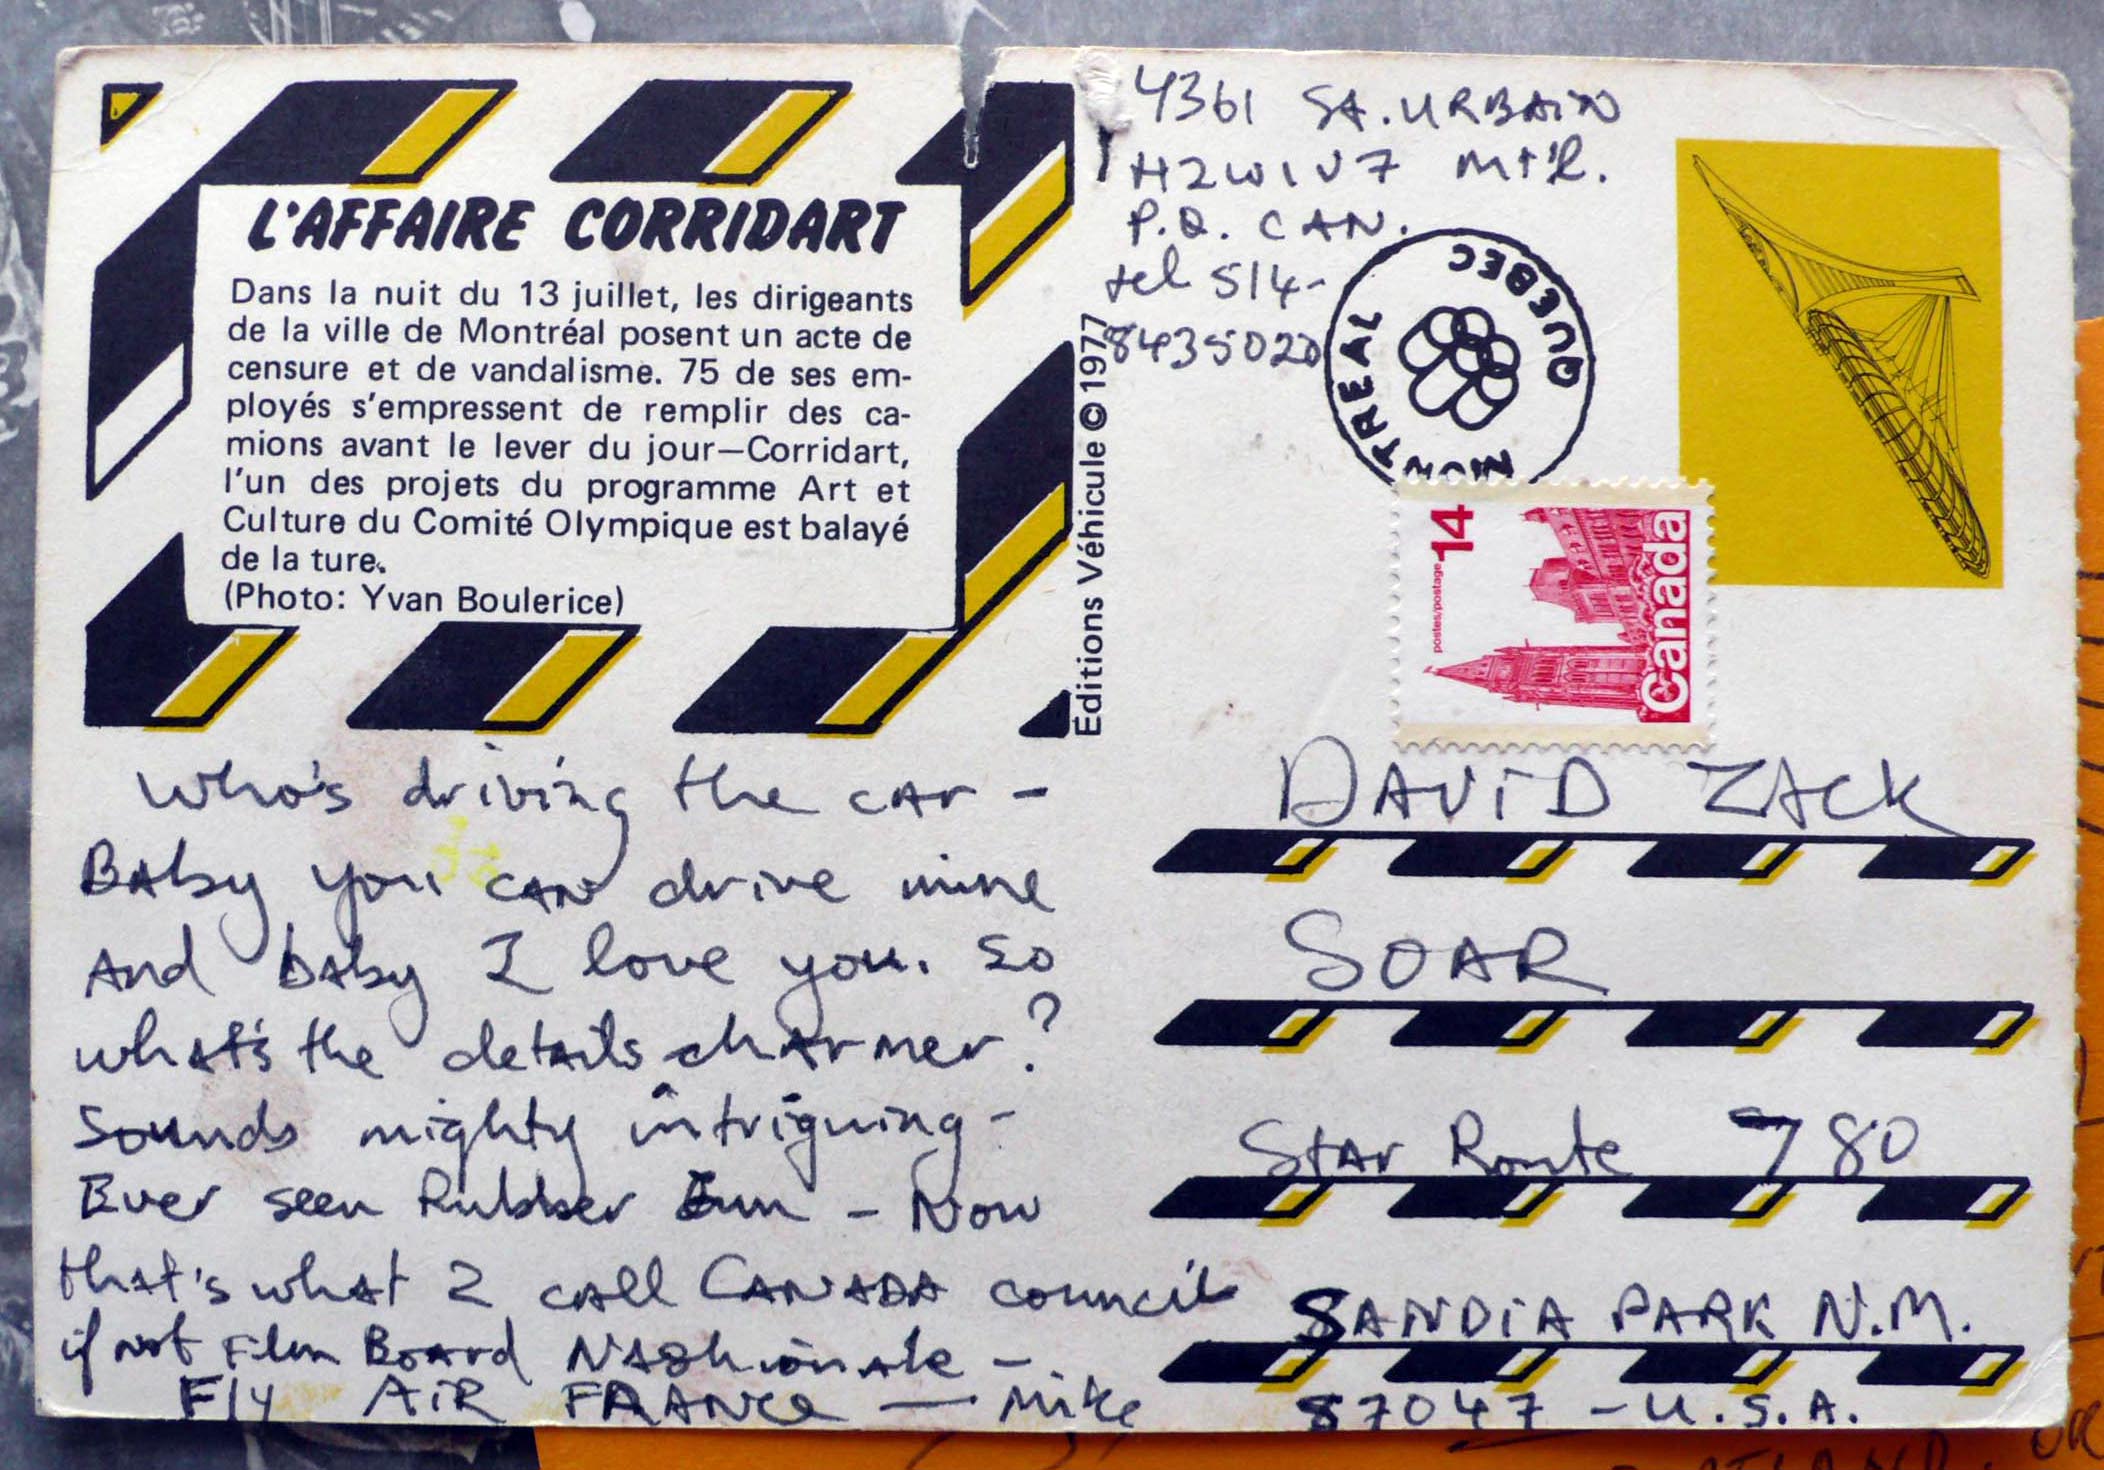 L'AFFAIRE CORRIDART
Dans la nuit du 13 juillet, les dirigeants
de la ville de Montréal posent un acte de
censure et de vandalisme. 75 de ses em-
ployés s'empressent de remplir des ca-
mions avant le lever du jour—Corridart,
l'un des projets du programme Art et
Culture du Comité Olympique est balayé
de la ture.
(Photo: Yvan Boulerice)
Editions Véhicule © 1977
4361 St. URBAiN
H2W1V7 Mt'l.
P.Q. CAN.
tel 514-
8435020
MONTREAL QUEBEC
postes/postage 14
Canada
Who's driving the car -
Baby you can drive mine
And baby I love you. So
what's the details charmer?
Sounds mighty intriguing -
Ever seen Rubber Gun - Now
that's what I call CANADA council
if not Film Board Nashionale -
Fly AiR FRANce — Mike
DAViD ZACK
SOAR
Star Route 780
SANDiA PARK N.M.
87047 - U.S.A.